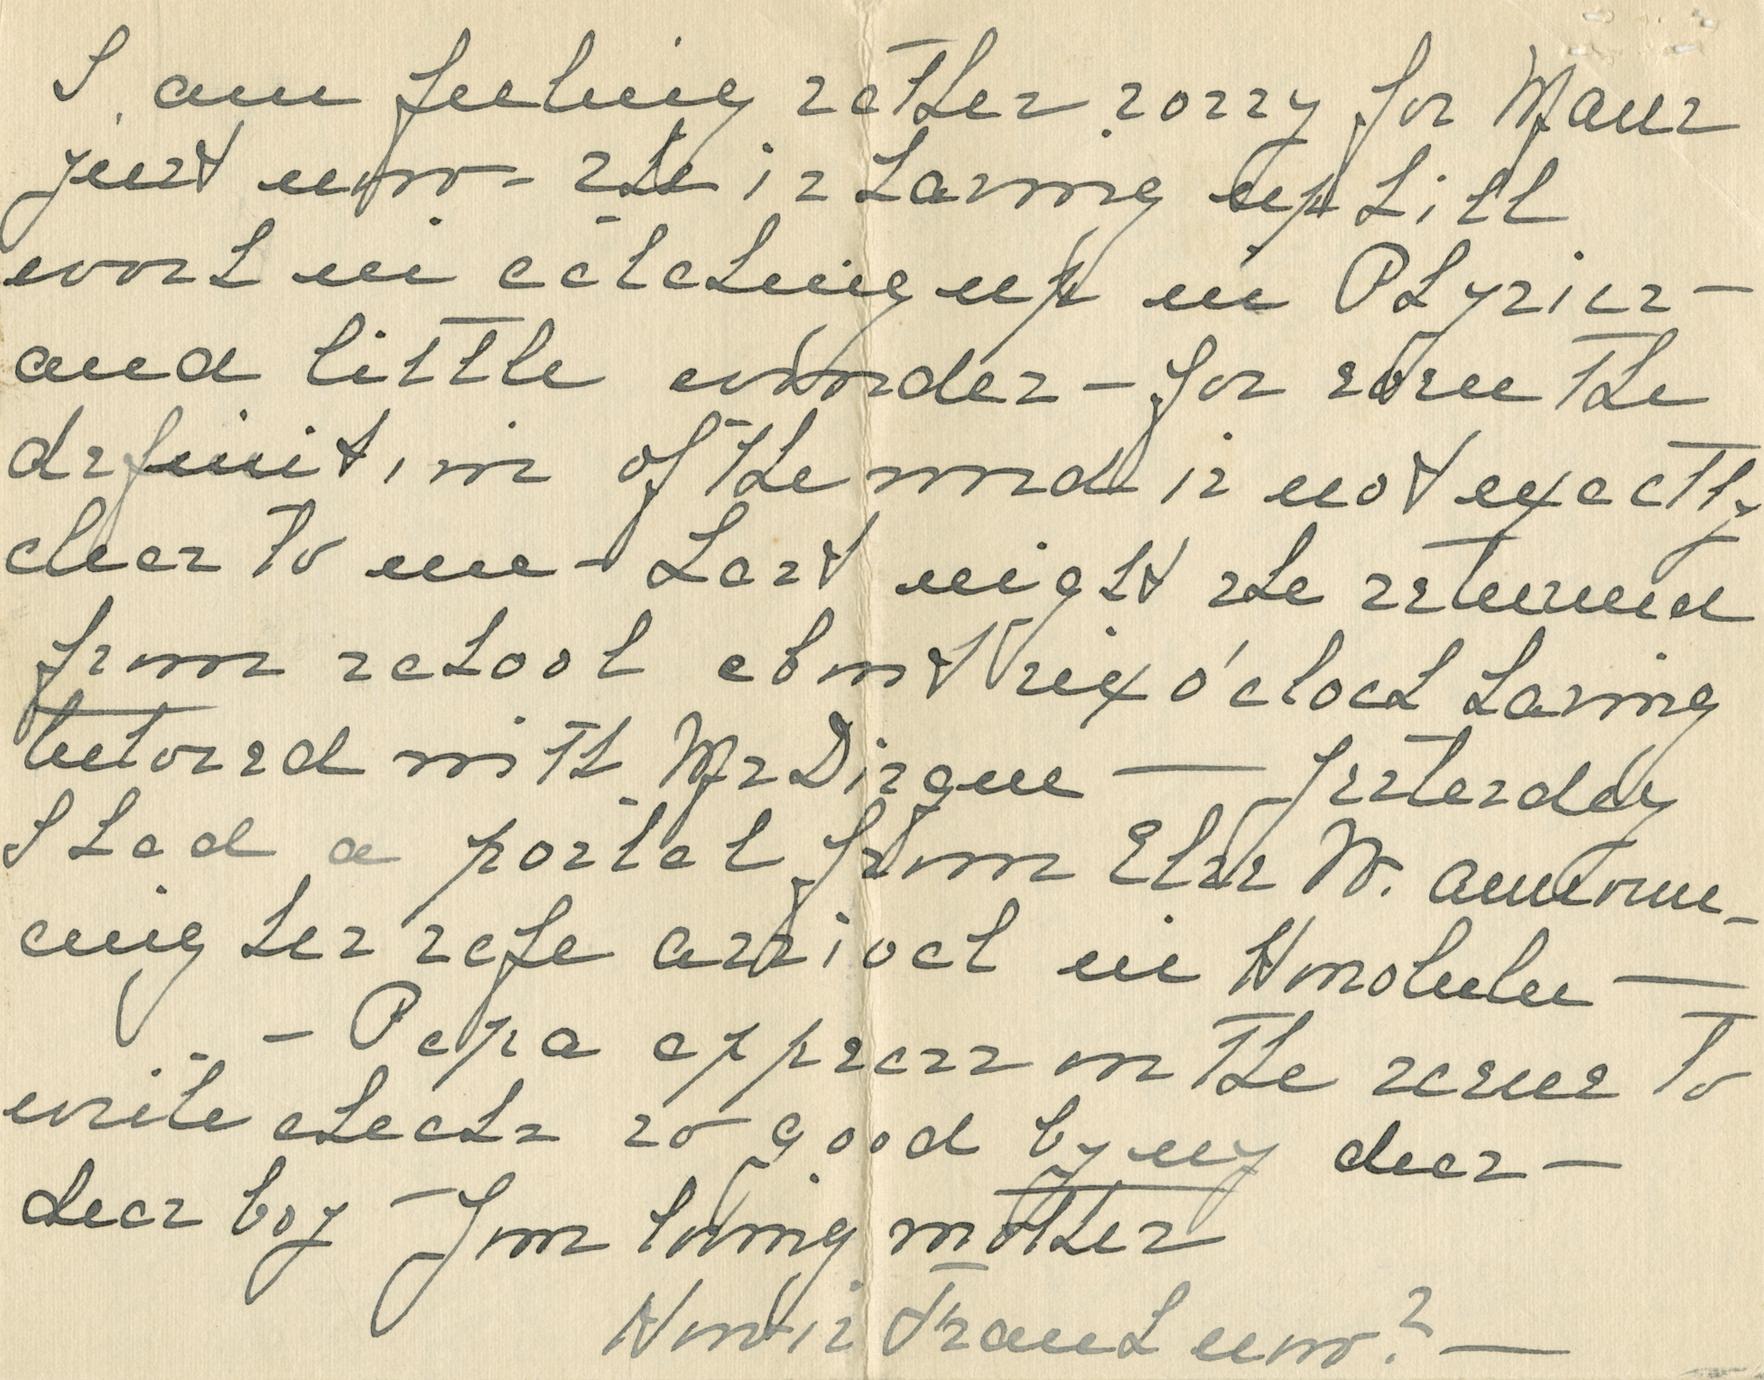 I am feeling rather sorry for Mans
just now - she is having up hill
work in catching up in Physics -
and little wonder - for some the
definition of the word is not exactly
clear to me - Last night she returned
from school about six o'clock having
tutored with Mr Dirgue — Yesterday
I had a postal from Else W. announ-
cing her safe arrival in Honolulu —
- Papa appears on the scene to
write checks so good by my dear -
dear boy - Your loving mother
How is Frank now? —